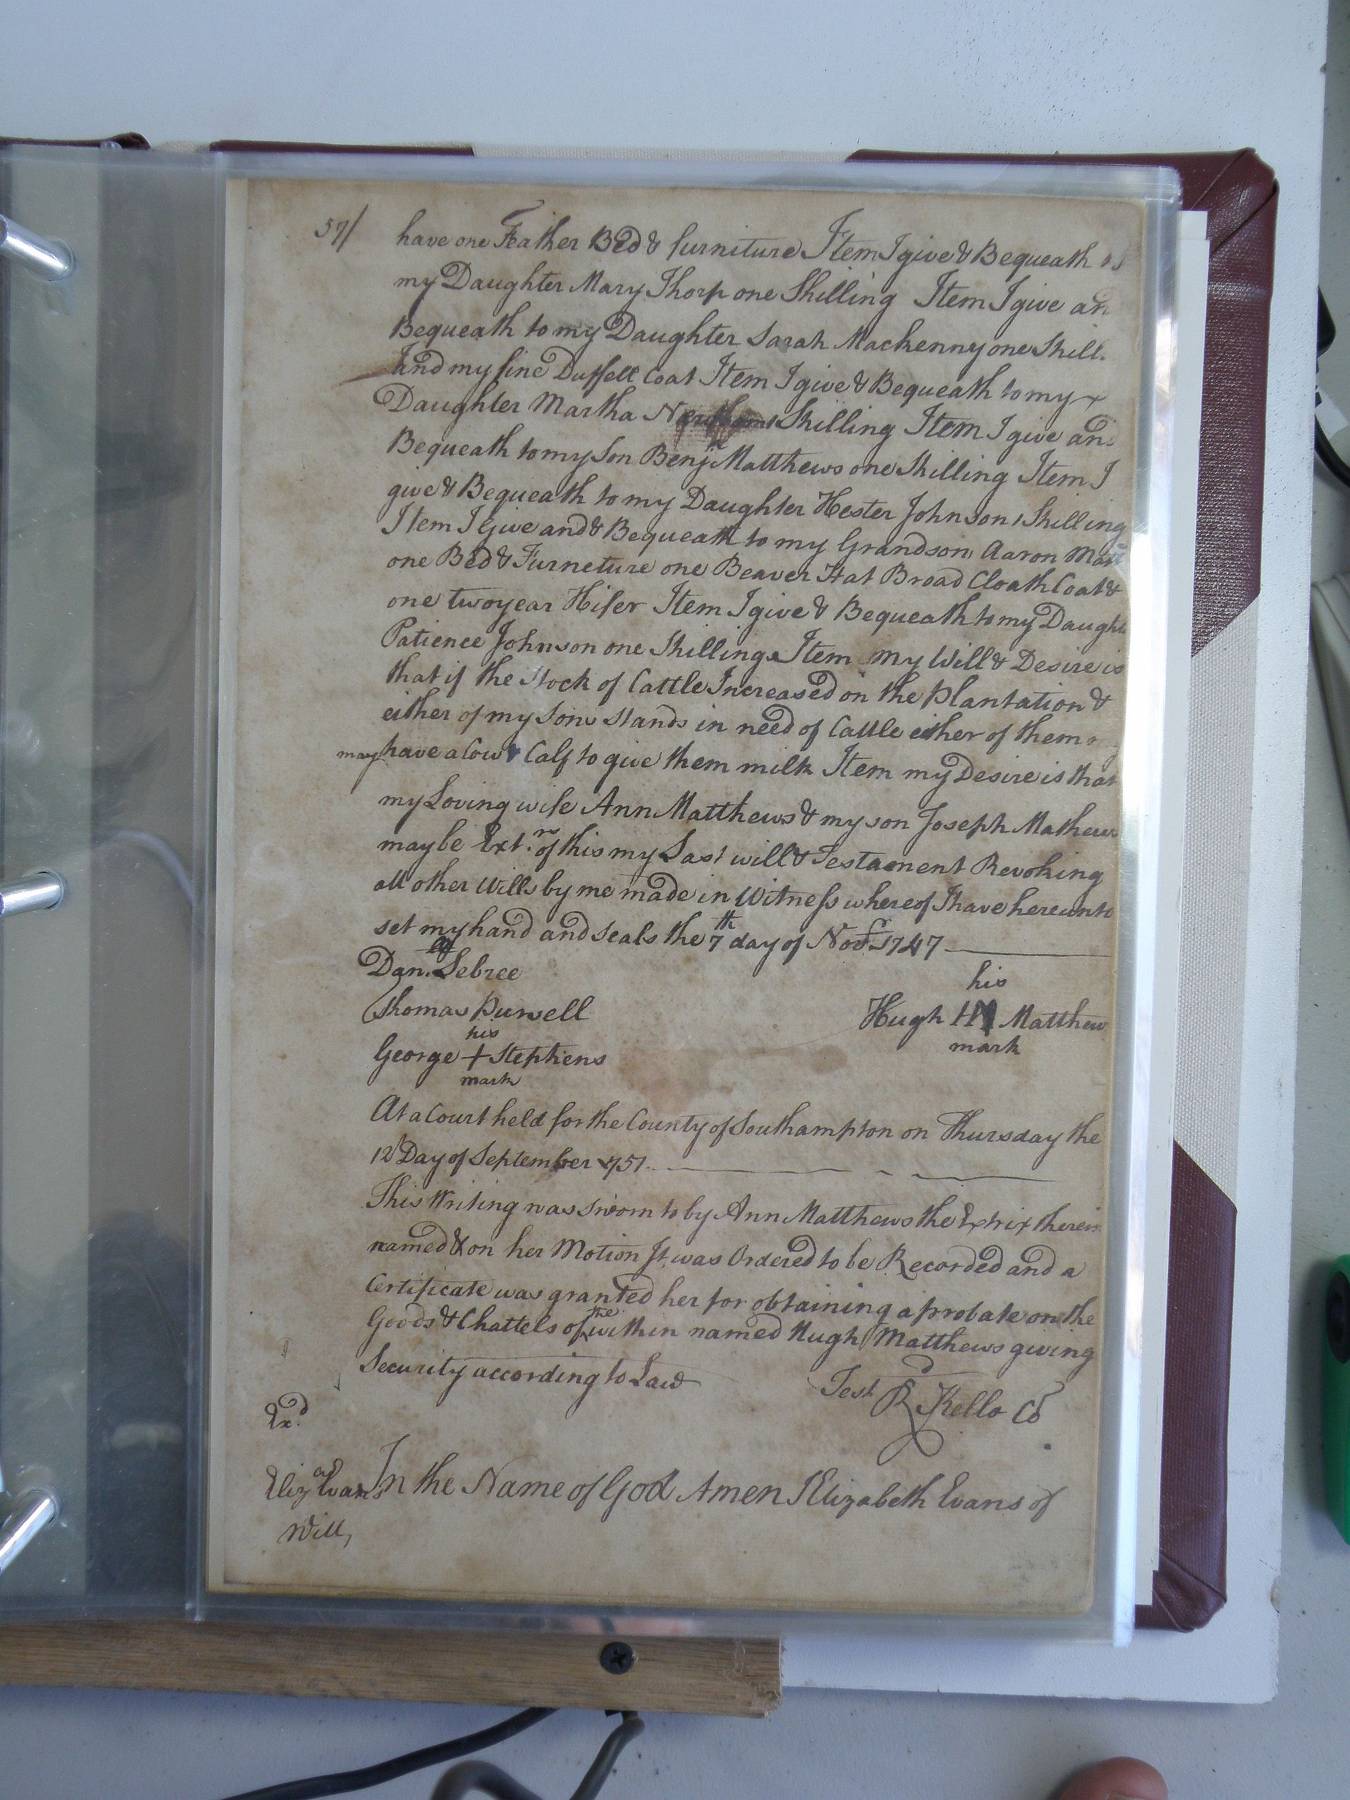 57/ have one Feather Bed & furniture Item I give & Bequeath to
my Daughter Mary Thorp one Shilling Item I give an
Bequeath to my Daughter Sarah Mackenny one Shill.
And my fine Duffell Coat Item I give & Bequeath to my
Daughter Martha 1 Shilling Item I give and
Bequeath to my Son Benja Matthews one Shilling Item I
give & Bequeath to my Daughter Hester Johnson 1 Shilling
Item I Give and & Bequeath to my Grandson Aaron Matt
one Bed & Furneture one Beaver Hat Broad Cloath Coat &
one two year Hifer Item I give & Bequeath to my Daught
Patience Johnson one Shilling Item my Will & Desire is
that if the Stock of Cattle Increased on the Plantation &
either of my Sons Stands in need of Cattle either of them
may have a Cow & Calf to give them milk Item my Desire is that
my Loving wife Ann Matthews & my son Joseph Mathews
may be Extrs of this my Last will & Testament Revoking
all other Wills by me made in Witness whereof I have hereunto
set my hand and seals the 7th day of Novr 1747
Dan. Sebree
his
Thomas Pursell
Hugh HM Matthew
his
mark
George + Stephens
mark
At a Court held for the County of Southampton on Thursday the
12 Day of September 1751.
This Writing was Sworn to by Ann Matthews the Extrix therein
named & on her Motion It was Ordered to be Recorded and a
Certificate was granted her for obtaining a probate on the
Goods & Chattels of the within named Hugh Matthews giving
Security according to Law
Test Rd Kello Cl
Exd
Elizath Evans In the Name of God Amen I Elizabeth Evans of
Will,